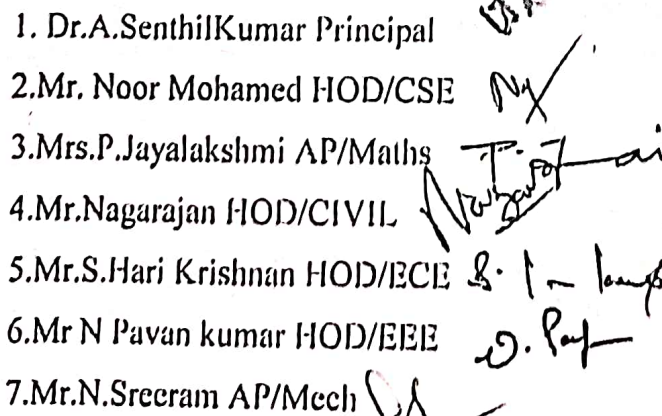 1. Dr.A.SenthilKumar Principal
2.Mr. Noor Mohamed HOD/CSE
3.Mrs.P.Jayalakshmi AP/Maths
4.Mr.Nagarajan HOD/CIVIL
5.Mr.S.Hari Krishnan HOD/ECE
6.Mr N Pavan kumar HOD/EEE
7.Mr.N.Sreeram AP/Mech